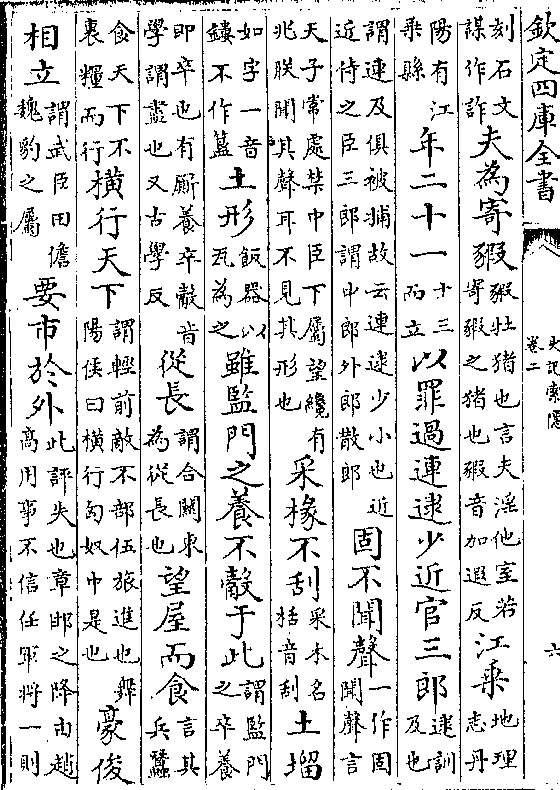 欽定四庫全書
史記索隱
卷二
六
刻石文
謀作詐
夫為寄豭
豭牡猪也言夫淫他室若
寄豭之猪也豭音加遐反
江乘
地理
志丹
陽有江
乘縣
年二十一
十三
而立
以罪過連逮少近官三郎
逮訓
及也
謂連及俱被捕故云連逮少小也近
近侍之臣三郎謂中郎外郎散郎
固不聞聲
一作固
聞聲言
天子常處禁中臣下屬望纔有
兆朕聞其聲耳不見其形也
采椽不刮
采木名
括音刮
土塯
如字一音
鏤不作簋
土形
飯器以
瓦為之
雖監門之養不觳于此
謂監門
之卒養
即卒也有厮養卒觳音
學謂盡也又古學反
從長
謂合關東
為從長也
望屋而食
言其
兵蠶
食天下不
裹糧而行
橫行天下
謂輕前敵不部伍旅進也舞
陽侯曰橫行匈奴中是也
豪俊
相立
謂武臣田儋
魏豹之屬
要市於外
此評失也章邯之降由趙
高用事不信任軍將一則